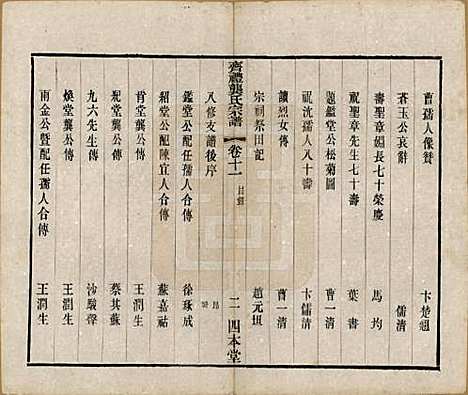 曹孺人像贊 卞楚翹
蒼玉公哀辭 儒清
壽聖章姻長七十榮慶 馬均
祝聖章先生七十壽 葉書
題鑑堂公松菊圖 曹一清
祝沈孺人八十壽 卞儒清
讀烈女傳 曹一清
宗祠祭田記 趙元瓨
齊禮龔氏宗譜 卷十一 目錄 二 四本堂
八修支譜後序
鑑堂公配任孺人合傳 徐琢成
紹堂公配陳宜人合傳 蘇嘉祜
肯堂龔公傳 王潤生
堂龔公傳 蔡其蘇
九六先生傳 沙駿聲
煥堂龔公傳 王潤生
雨金公暨配任孺人合傳 王潤生